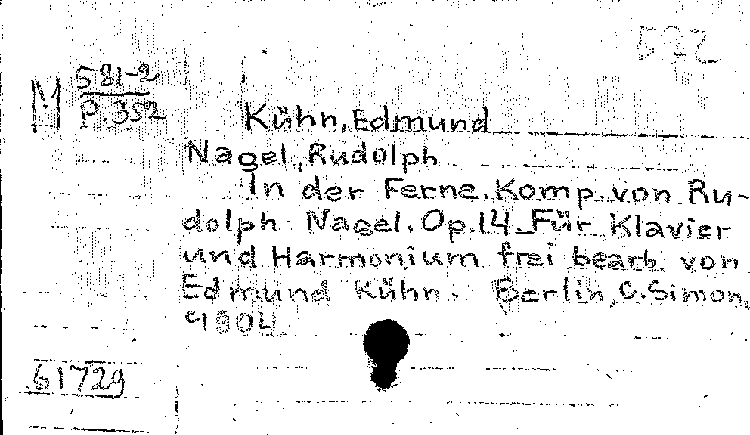 572
M 581-2
P.352
Kühn, Edmund
Nagel, Rudolph
In der Ferne. Komp. von Ru-
dolph Nagel. Op.14 Für Klavier
und Harmonium frei bearb. von
Edmund Kühn. Berlin, C. Simon,
1904
61729